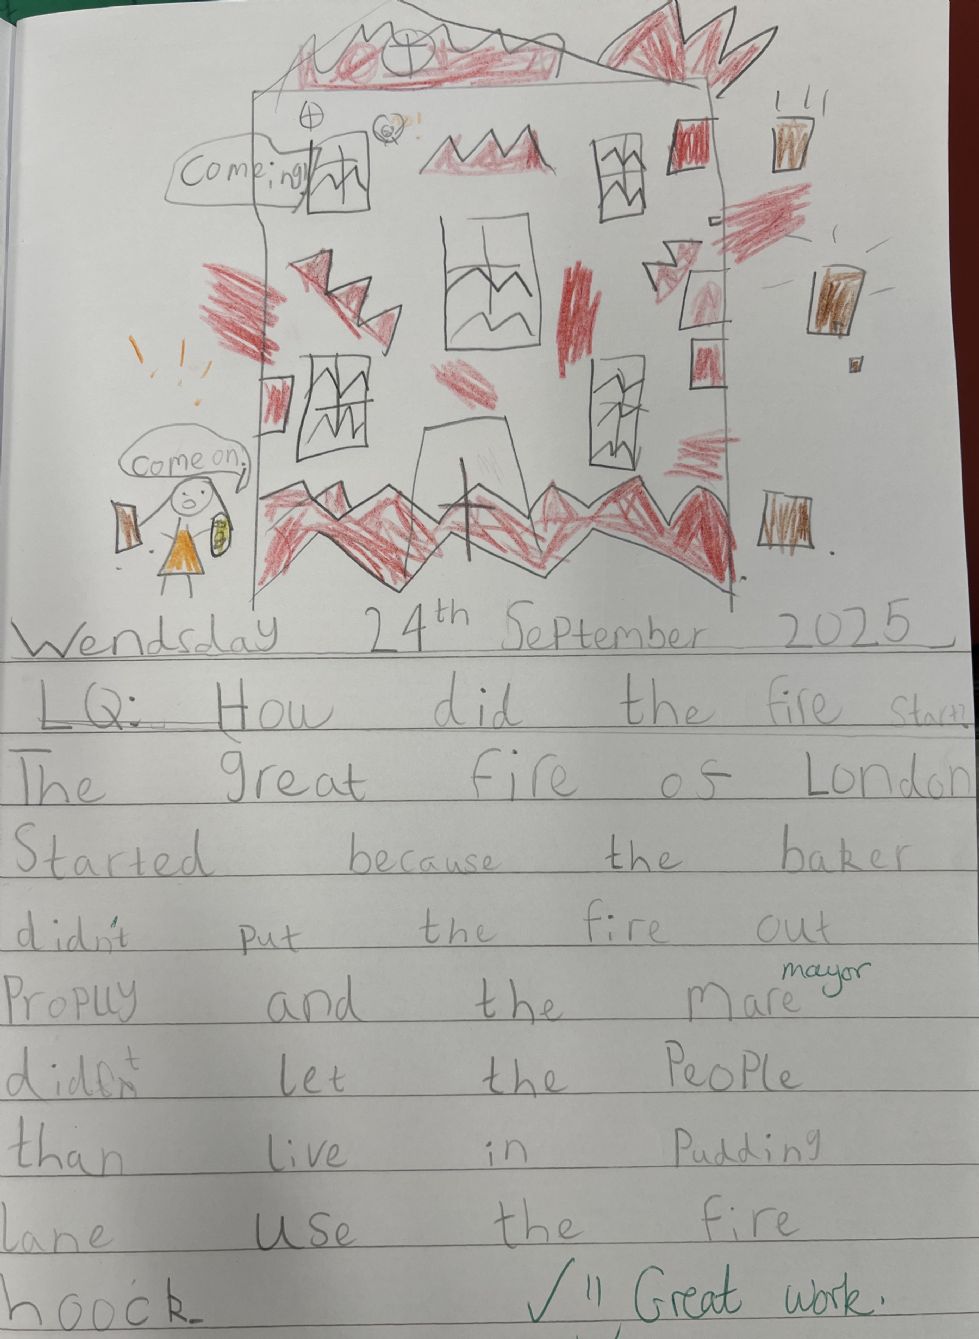 Comeing!
Come on.
Wendsday 24th September 2025
LQ: How did the fire start?
The great fire of London
Started because the baker
didn't put the fire out
Propuy and the mare mayor
didn't let the People
than live in Pudding
lane use the fire
hoock.
✓ " Great work.